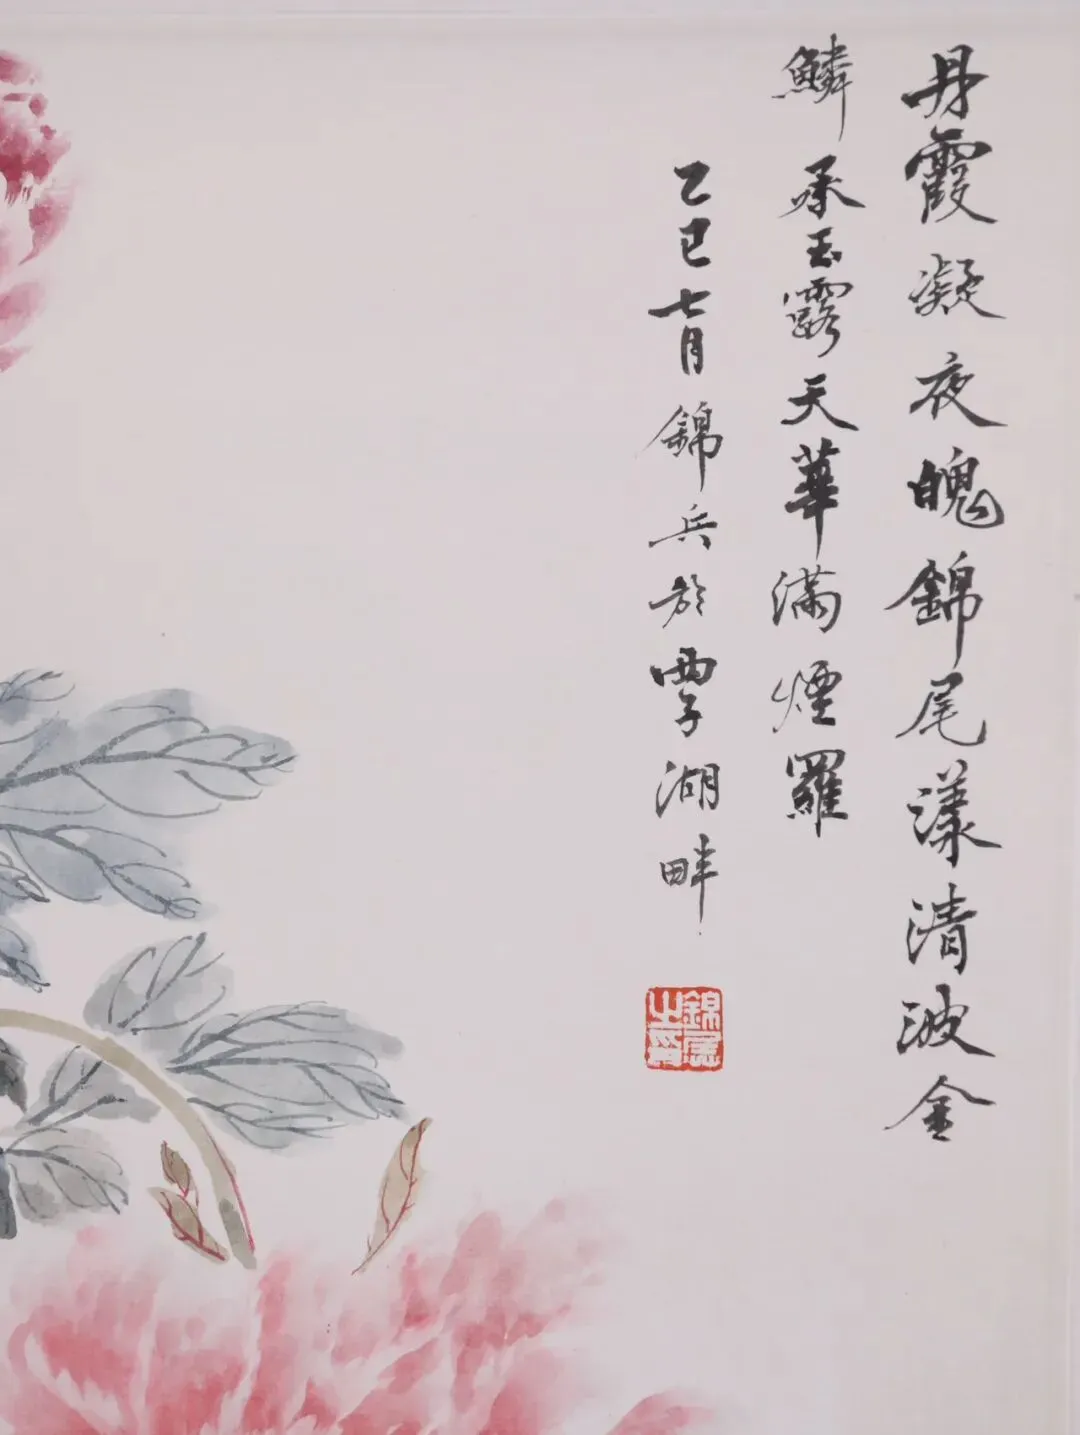 丹霞凝夜魄錦尾漾清波金
鱗承玉露天華滿煙羅
乙巳七月錦兵於西子湖畔
錦兵之印